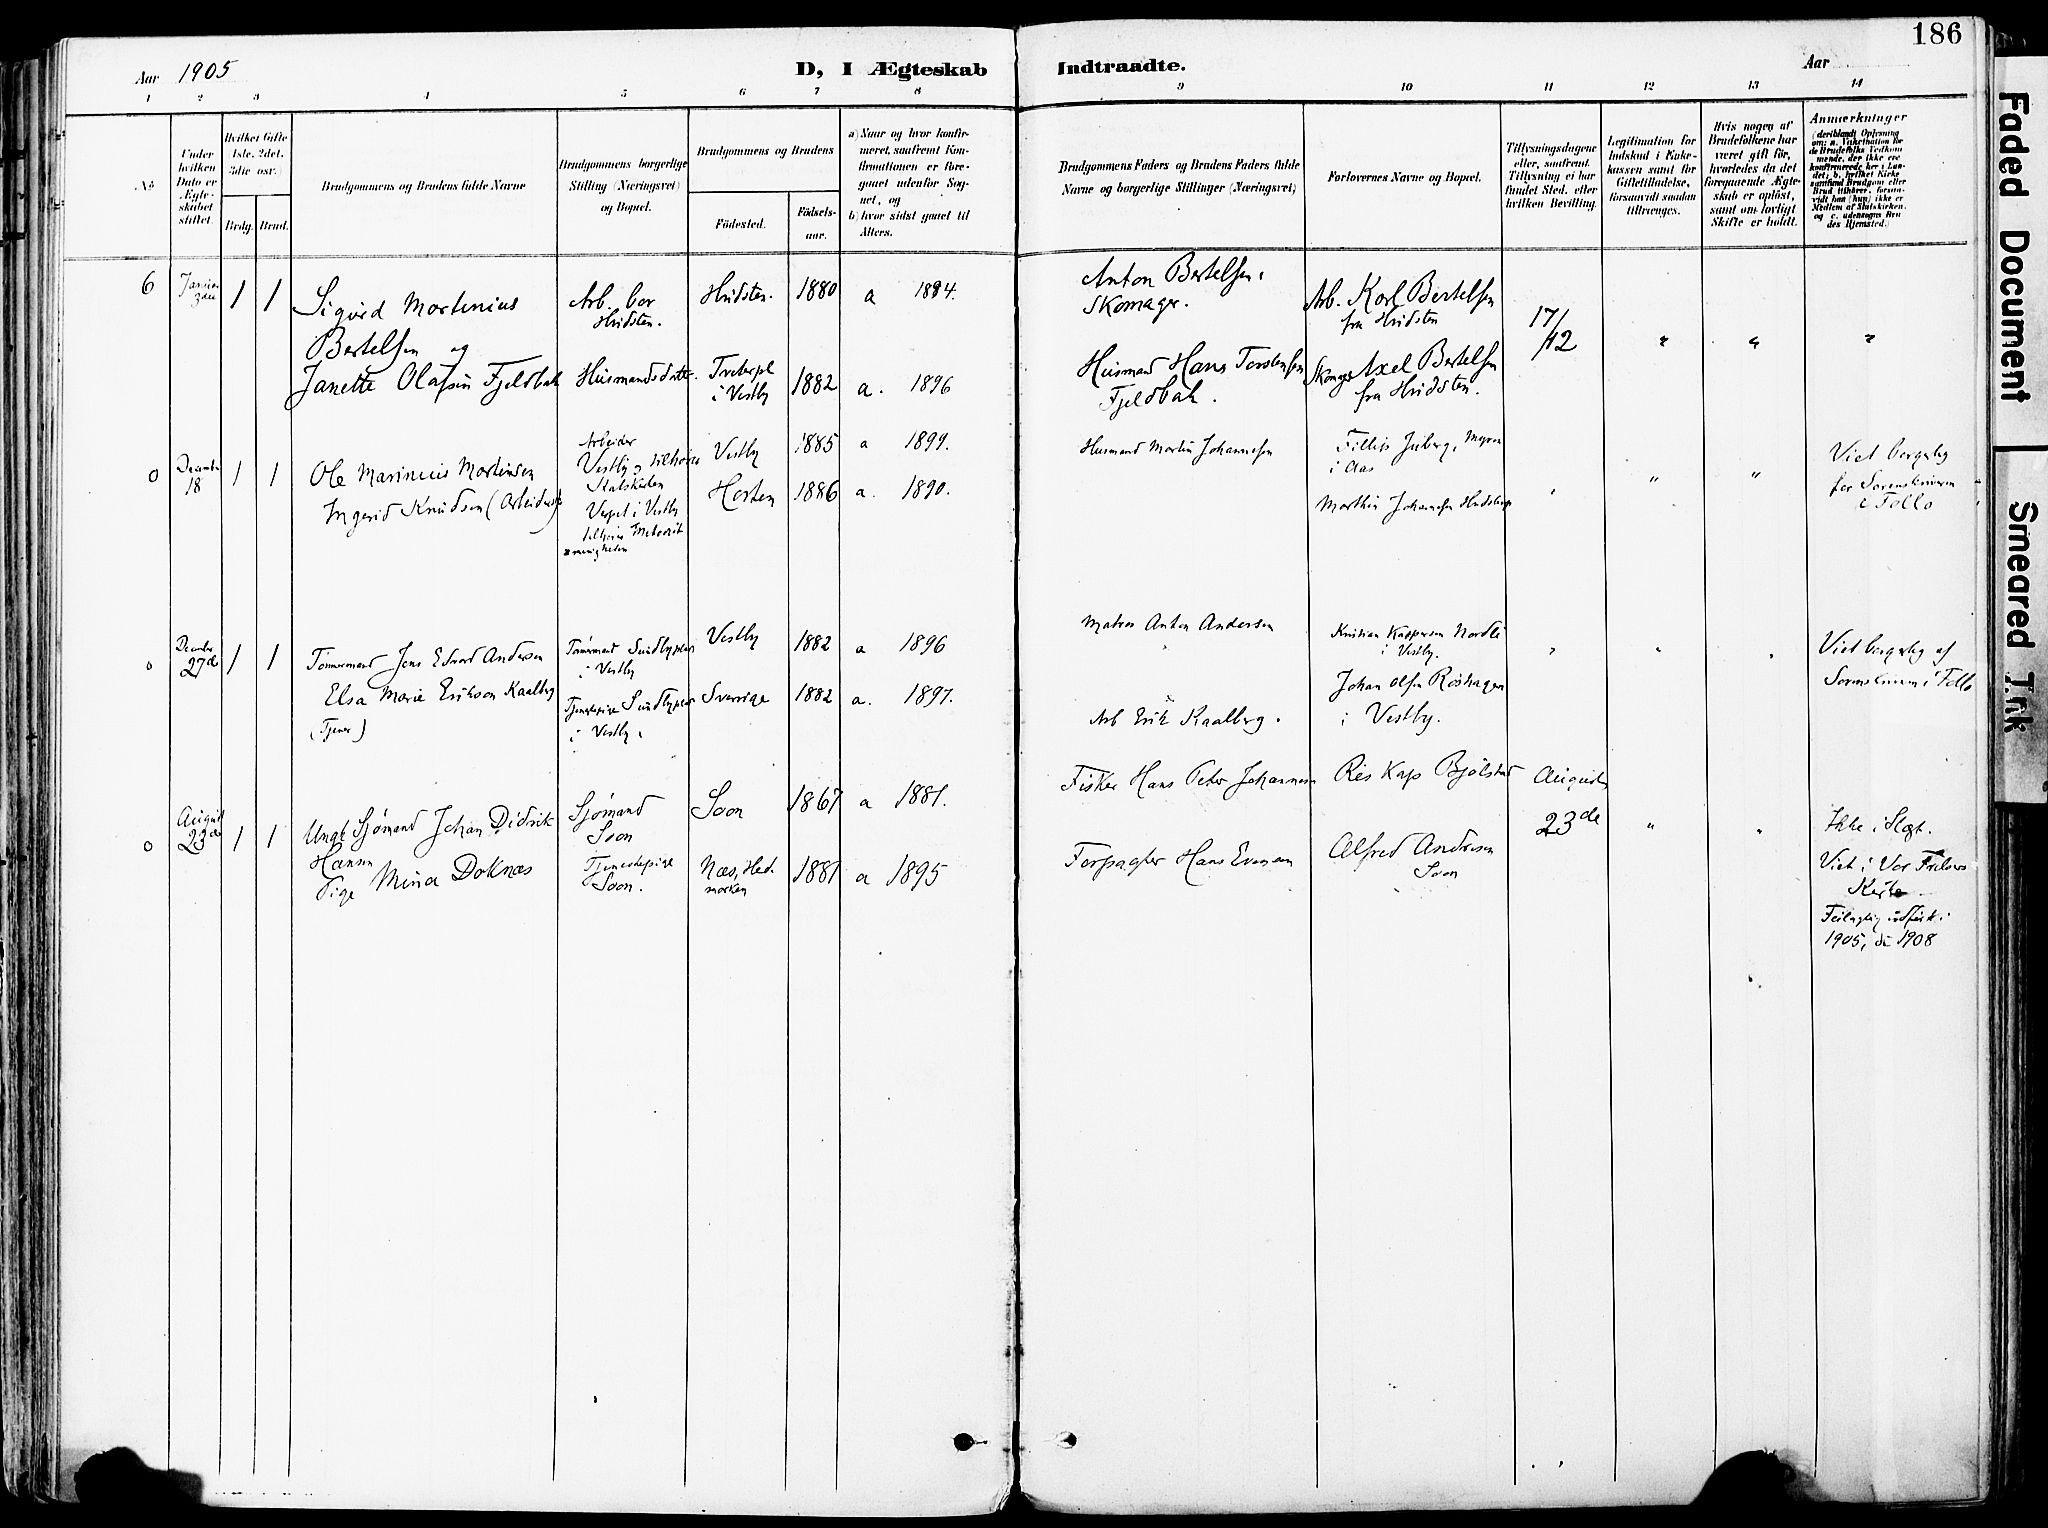 186
Aar 1905
D, I Ægteskab Indtraadte.
Aar
1 2 3 4 5 6 7 8 9 10 11 12 13 14
No
Under hvilken Dato er Ægteskabet stiftet.
Hvilket Gifte 1ste, 2det, 3die osv.)
Brdg. Brud.
Brudgommens og Brudens fulde Navne
Brudgommens borgerlige Stilling (Næringsvei) og Bopæl.
Brudgommens og Brudens
Fødested.
Fødselsaar.
a) Naar og hvor konfirmeret, saafremt Konfirmationen er foregaaet udenfor Sognet, og
b) hvor sidst gaaet til Alters.
Brudgommens Faders og Brudens Faders fulde Navne og borgerlige Stillinger (Næringsvei)
Forlovernes Navne og Bopæl.
Tillysningsdagene eller, saafremt Tillysning ei har fundet Sted, efter hvilken Bevilling.
Legitimation for Indskud i Enkekassen samt for Giftetilladelse, forsaavidt saadan tiltrænges.
Hvis nogen af Brudefolkene har været gift før, hvorledes da det foregaaende Ægteskab er opløst, samt om lovligt Skifte er holdt.
Anmærkninger
6 3die 1 1
Sigurd Martinius
Bertelsen og
Arb. bor
Hvidsten.
Hvidsten. 1880 a 1894.
Anton Bertelsen,
Skomager.
Arb. Karl Bertelsen
fra Hvidsten
17/12
Janette Olafsen Fjeldbak
Husmandsdatter.
i Vestby
1882 a. 1896
Husmand Hans Torstensen
Fjeldbak.
Axel Bertelsen
fra Hvidsten.
0 December 18 1 1
Ole Marinius Mortensen
Arbeider
Vestby, tilhører
Statskirken
Vestby 1885 a 1899.
Husmand Martin Johannesen
i Aas
Viet borgerlig
for Sorenskriveren
i Follo
Ingerid Knudsen
i Vestby
tilhører Metodist
menigheden
Horten 1886 a. 1890.
Marthin Johannesen
0 December 27de 1 1
Tømmermand Jens Edvard Andersen
Tømmermand
i Vestby
Vestby 1882 a 1896
Matros Anton Andersen
Kristian Kaspersen Nordli
i Vestby.
Viet borgerlig af
Sorenskriveren i Follo
Elsa Marie Erikson Kaalberg
(Tjener)
Tjenestepige
i Vestby.
Sverrige 1882 a. 1897.
Arb Erik Kaalberg.
Johan Olsen Røshagen
i Vestby.
0 August 23de 1 1
Ungk Sjømand Johan Didrik
Hansen
Sjømand
Soon
Soon 1867 a 1881.
Fisker Hans Peter Johannesen
Kap Bjølstad
August
23de
Ikke i Slægt.
Viet i Vor Frelsers
Kirke
Feilagtig indført i
1905, da 1908
Pige Mina Doknæs
Tjenestepige
Soon.
Næs, Hedmarken 1881 a 1895
Forpagter Hans Evensen
Alfred Andresen
Soon
Faded Document
Smeared Ink